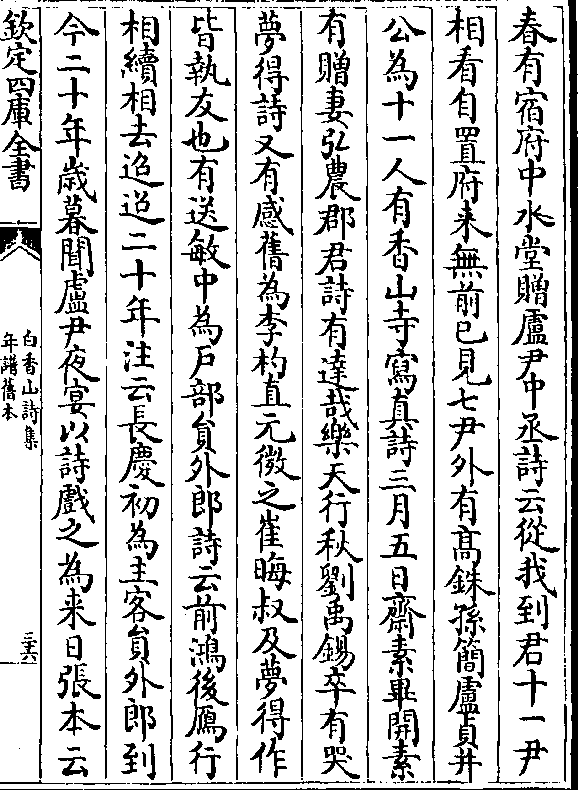 春有宿府中水堂贈盧尹中丞詩云從我到君十一尹
相看自置府来無前已見七尹外有髙銖孫簡盧貞并
公為十一人有香山寺寫真詩三月五日齋素畢開素
有贈妻弘農郡君詩有達哉樂天行秋劉禹錫卒有哭
夢得詩又有感舊為李杓直元微之崔晦叔及夢得作
皆執友也有送敏中為戸部負外郎詩云前鴻後鴈行
相續相去迢迢二十年注云長慶初為主客負外郎到
今二十年歳暮聞盧尹夜宴以詩戲之為来日張本云
欽定四庫全書
白香山詩集
年譜舊本
三六